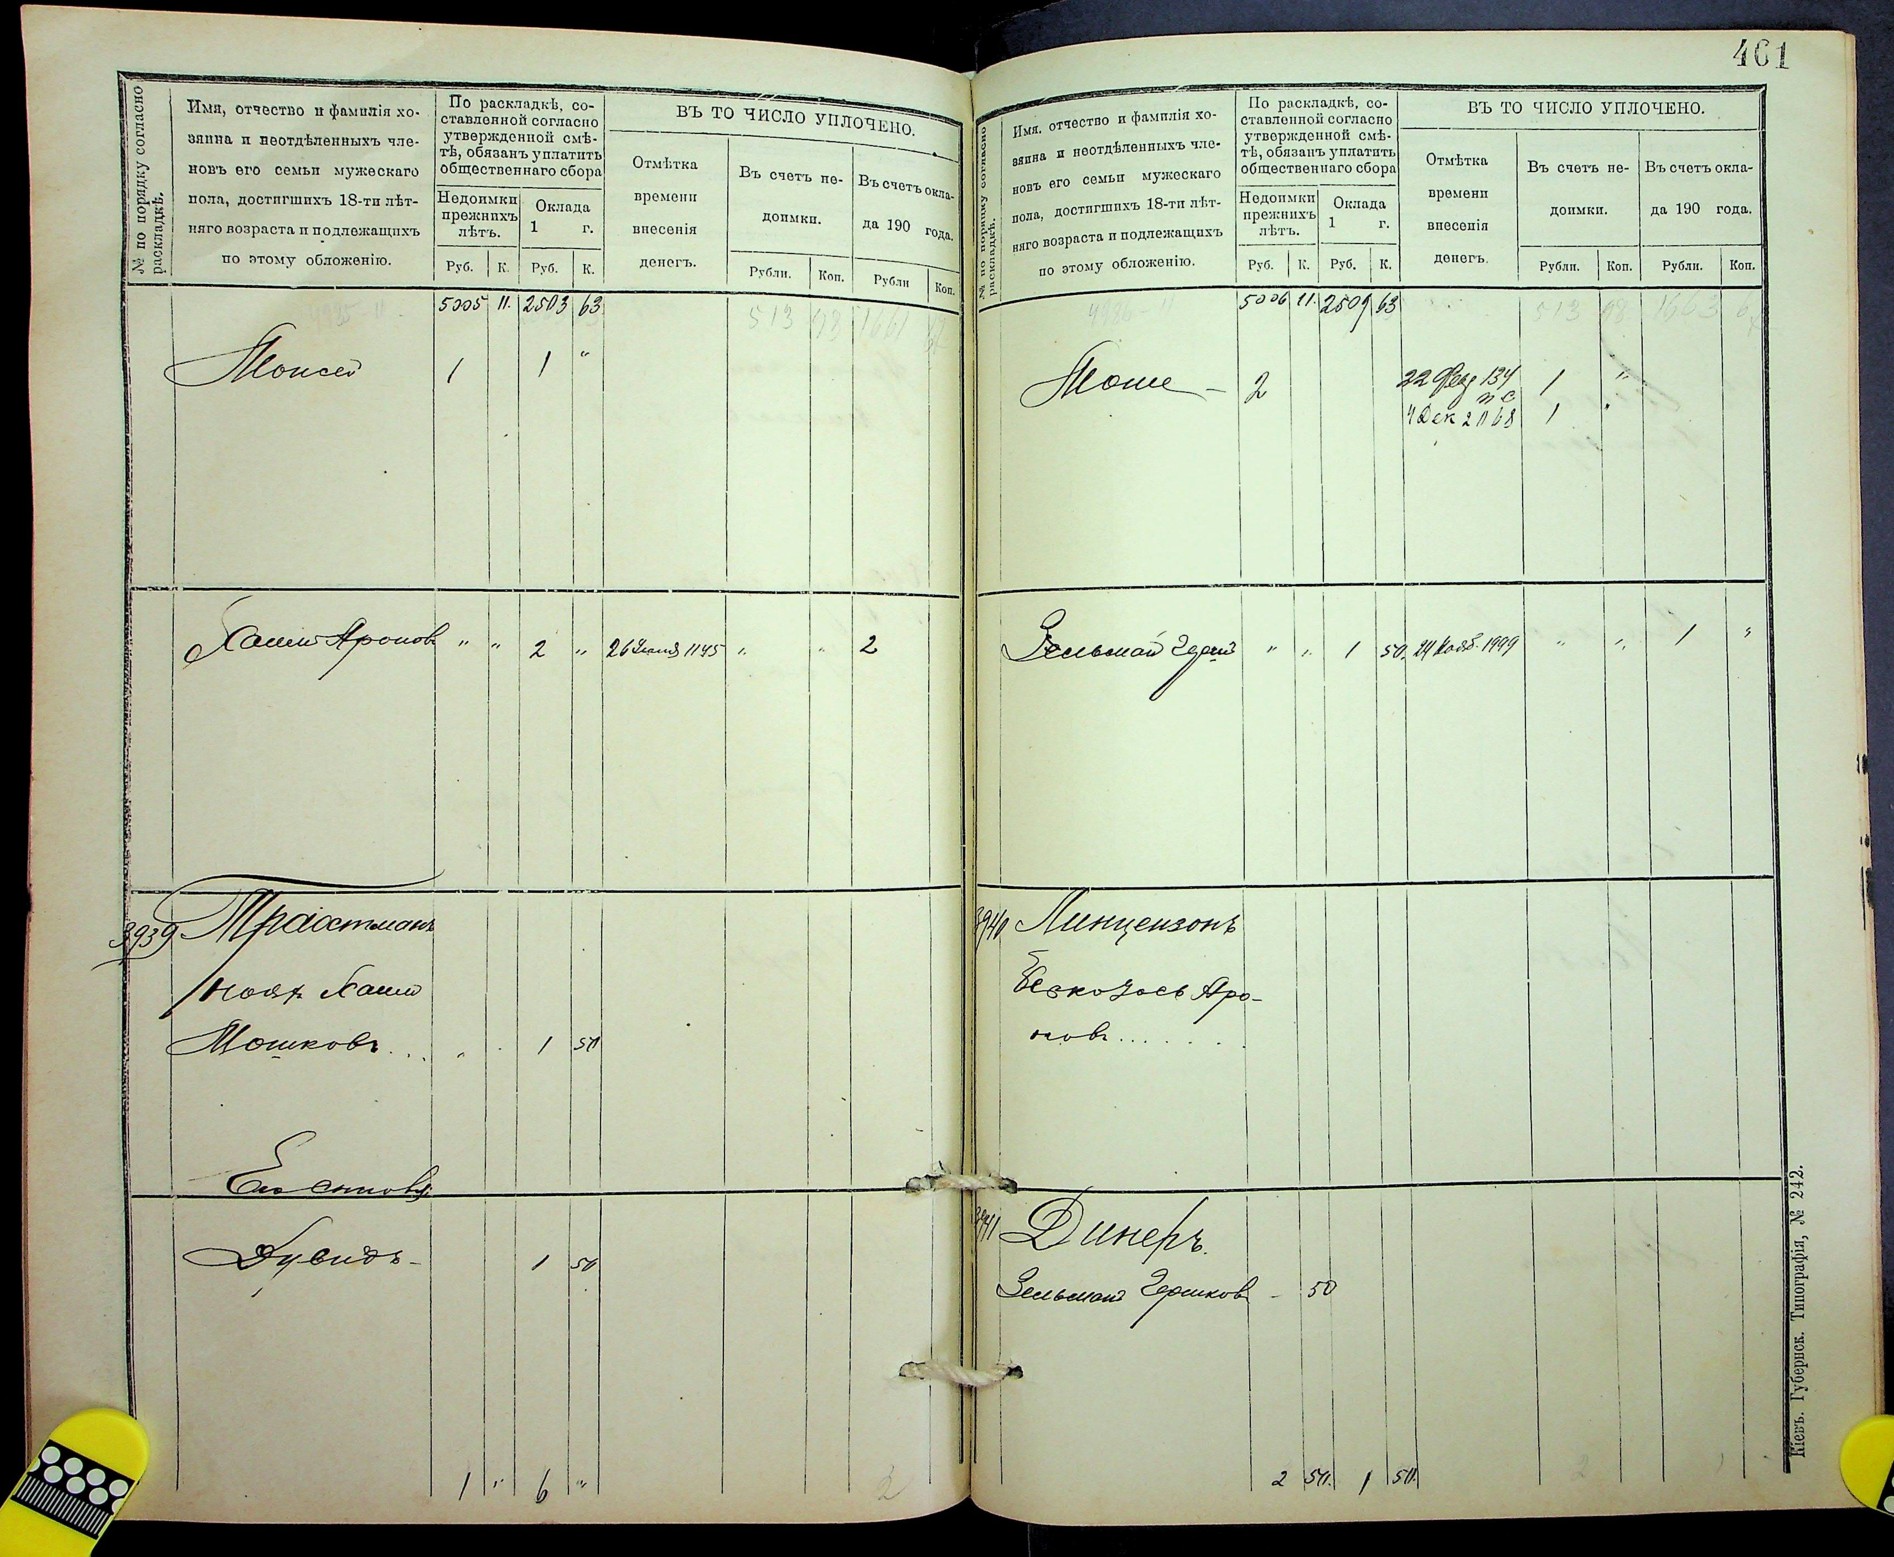 461
№ по порядку согласно раскладкѣ.
Имя, отчество и фамилія хо-
зяина и неотдѣленныхъ чле-
новъ его семьи мужескаго
пола, достигшихъ 18-ти лѣт-
няго возраста и подлежащихъ
по этому обложенію.
По раскладкѣ, со-
ставленной согласно
утвержденной смѣ-
тѣ, обязанъ уплатить
общественнаго сбора
Недоимки
прежнихъ
лѣтъ.
Оклада
1 г.
Руб. К. Руб. К.
ВЪ ТО ЧИСЛО УПЛОЧЕНО.
Отмѣтка
времени
внесенія
денегъ.
Въ счетъ не-
доимки.
Въ счетъ окла-
да 190 года.
Рубли. Коп. Рубли Коп.
5005 11. 2503 63
513 98 1661
Мойсей 1 1 "
Хаимъ Ароновъ " " 2 " 26 1145 " " 2
3939 Трастманъ
Хаимъ
Мошковъ . . . " . 1 50
Его сынъ
Дувидъ - 1 50
1 " 6 " 2
№ по порядку согласно раскладкѣ.
Имя. отчество и фамилія хо-
зяина и неотдѣленныхъ чле-
новъ его семьи мужескаго
пола, достигшихъ 18-ти лѣт-
няго возраста и подлежащихъ
по этому обложенію.
По раскладкѣ, со-
ставленной согласно
утвержденной смѣ-
тѣ, обязанъ уплатить
общественнаго сбора
Недоимки
прежнихъ
лѣтъ.
Оклада
1 г.
Руб. К. Руб. К.
ВЪ ТО ЧИСЛО УПЛОЧЕНО.
Отмѣтка
времени
внесенія
денегъ.
Въ счетъ не-
доимки.
Въ счетъ окла-
да 190 года.
Рубли. Коп. Рубли. Коп.
5006 11. 2509 63
513 98 1663
Моше - 2 22 Фев 134 1 "
4 Дек 2068 1 "
Зельманъ " " 1 50. 24 Нояб. 1999 " " 1 "
3940 Линцензонъ
Аро-
новъ . . . . . .
3941 Динеръ.
Зельманъ Гершковъ - 50
2 50. 1 50.
Кіевъ. Губернск. Типографія, № 242.